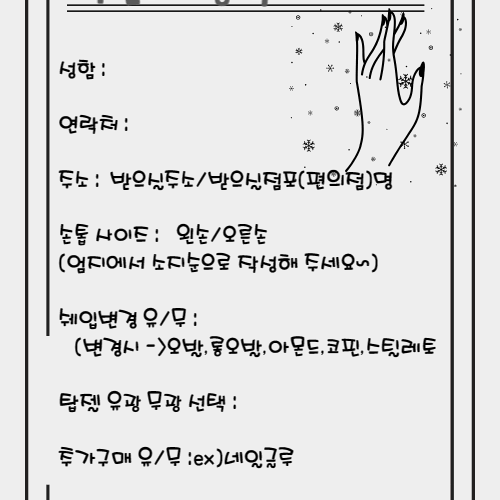 성함 :
연락처 :
주소 : 받으실주소/받으실점포(편의점)명
손톱 사이즈 : 왼손/오른손
(엄지에서 소지순으로 작성해 주세요~)
쉐입변경 유/무 :
(변경시 ->오발,롱오발,아몬드,코핀,스틸레토
탑젤 유광 무광 선택 :
추가구매 유/무 :ex)네일글루